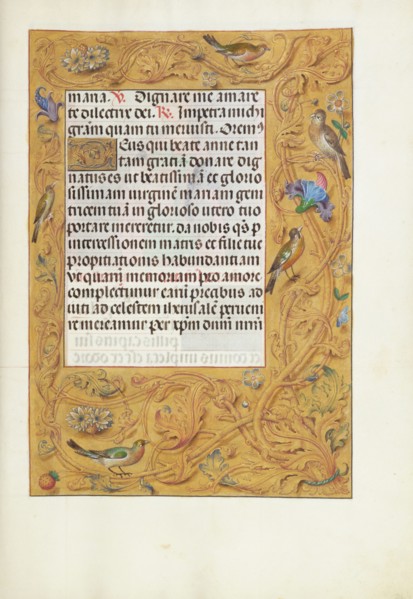 mana. V. Dignare me amare
te dilectrix dei. R. Impetra michi
gr̄am quam tu meruisti. Oremꝰ
Deus qui beate anne tan
tam gratiā donare dig
natus es ut beatissimā et glorio
sissimam virginē mariam geni
tricem tuā in glorioso utero suo
portare mereretur. da nobis qs̄ p
intercessionem matris et filie tue
propitiationis habundantiam
ut quarum memoriam pro amore
complectimur earū precibus ad
iuti ad celestem iherusalē perueni
re mereamur per xp̄m dnūm nr̄m